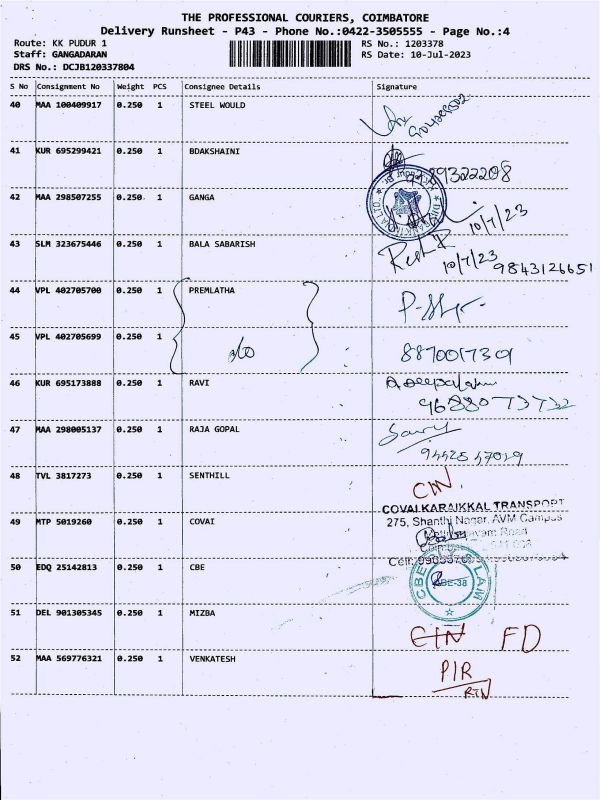 THE PROFESSIONAL COURIERS, COIMBATORE
Delivery Runsheet - P43 - Phone No.:0422-3505555 - Page No.:4
Route: KK PUDUR 1 RS No.: 1203378
Staff: GANGADARAN RS Date: 10-Jul-2023
DRS No.: DCJB120337804
S No Consignment No Weight PCS Consignee Details Signature
40 MAA 100409917 0.250 1 STEEL WOULD
41 KUR 695299421 0.250 1 BDAKSHAINI
42 MAA 298507255 0.250 1 GANGA 10/7/23
43 SLM 323675446 0.250 1 BALA SABARISH 10/7/23 9843126651
44 VPL 402705700 0.250 1 PREMLATHA
45 VPL 402705699 0.250 1 8870017301
46 KUR 695173888 0.250 1 RAVI
9688073732
47 MAA 298005137 0.250 1 RAJA GOPAL
48 TVL 3817273 0.250 1 SENTHILL
COVAI KARAIKKAL TRANSPORT
49 MTP 5019260 0.250 1 COVAI 275, Shanthi Nagar, AVM Campus
Road
50 EDQ 25142813 0.250 1 CBE
51 DEL 901305345 0.250 1 MIZBA FD
52 MAA 569776321 0.250 1 VENKATESH PIR
RTN